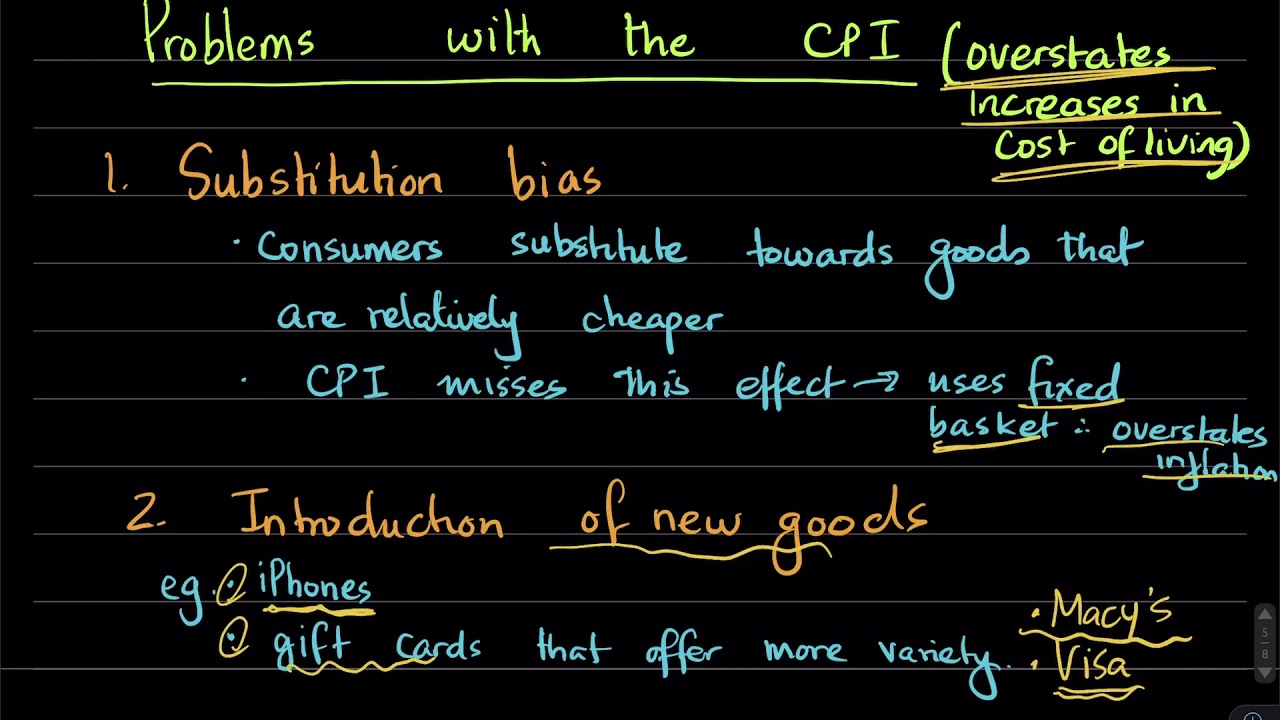 Problems with the CPI (overstates
increases in
cost of living)
1. Substitution bias
· Consumers substitute towards goods that
are relatively cheaper
· CPI misses this effect → uses fixed
basket ∴ overstates
inflation
2. Introduction of new goods
eg. · iPhones
· gift cards that offer more variety.
· Macy's
· Visa
5
8